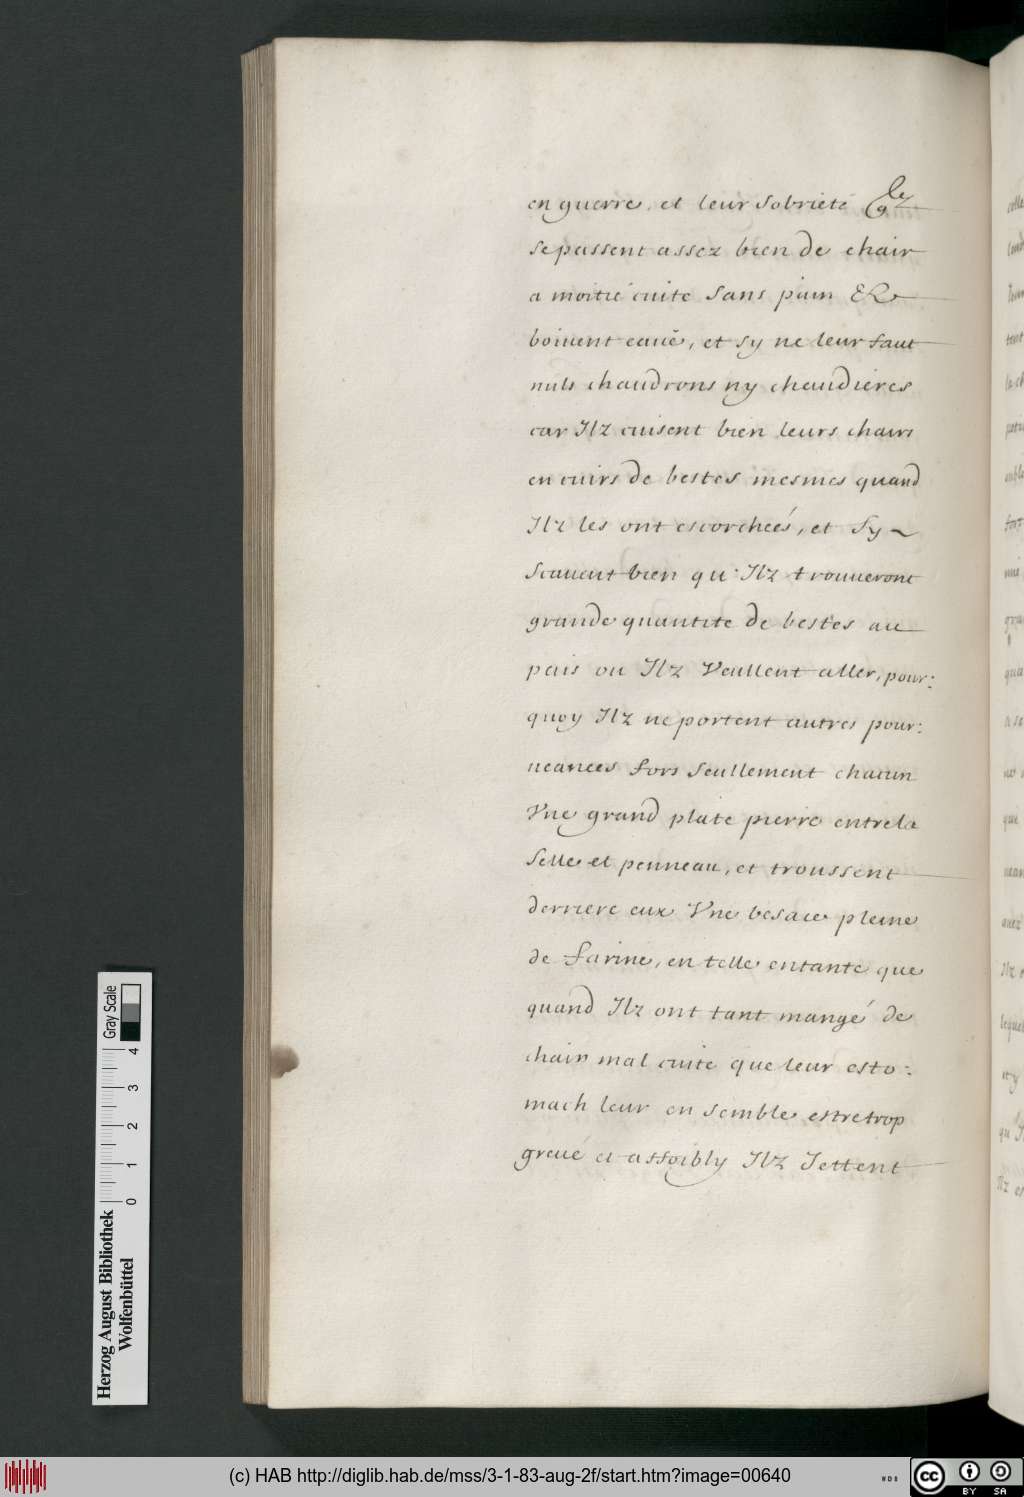 en guerre, et leur sobrieté
se passent assez bien de chair
a moitié cuite sans pain &
boiuent eaue, et sy ne leur faut
nuls chaudrons ny chaudieres
car Ilz cuisent bien leurs chairs
en cuirs de bestes mesmes quand
Ilz les ont escorcheés, et sy
scauent bien qu'Ilz trouueront
grande quantite de bestes au
pais ou Ilz Veullent aller, pour:
quoy Ilz ne portent autres pour:
ueances fors seullement chacun
Vne grand plate pierre entre la
selle et penneau, et troussent
derriere eux Vne besace pleine
de farine, en telle entante que
quand Ilz ont tant mangé de
chair mal cuite que leur esto:
mach leur en semble estre trop
greué et assoibly Ilz Jettent
Gray Scale
0 1 2 3 4
Herzog August Bibliothek
Wolfenbüttel
(c) HAB http://diglib.hab.de/mss/3-1-83-aug-2f/start.htm?image=00640
WDB
cc BY SA